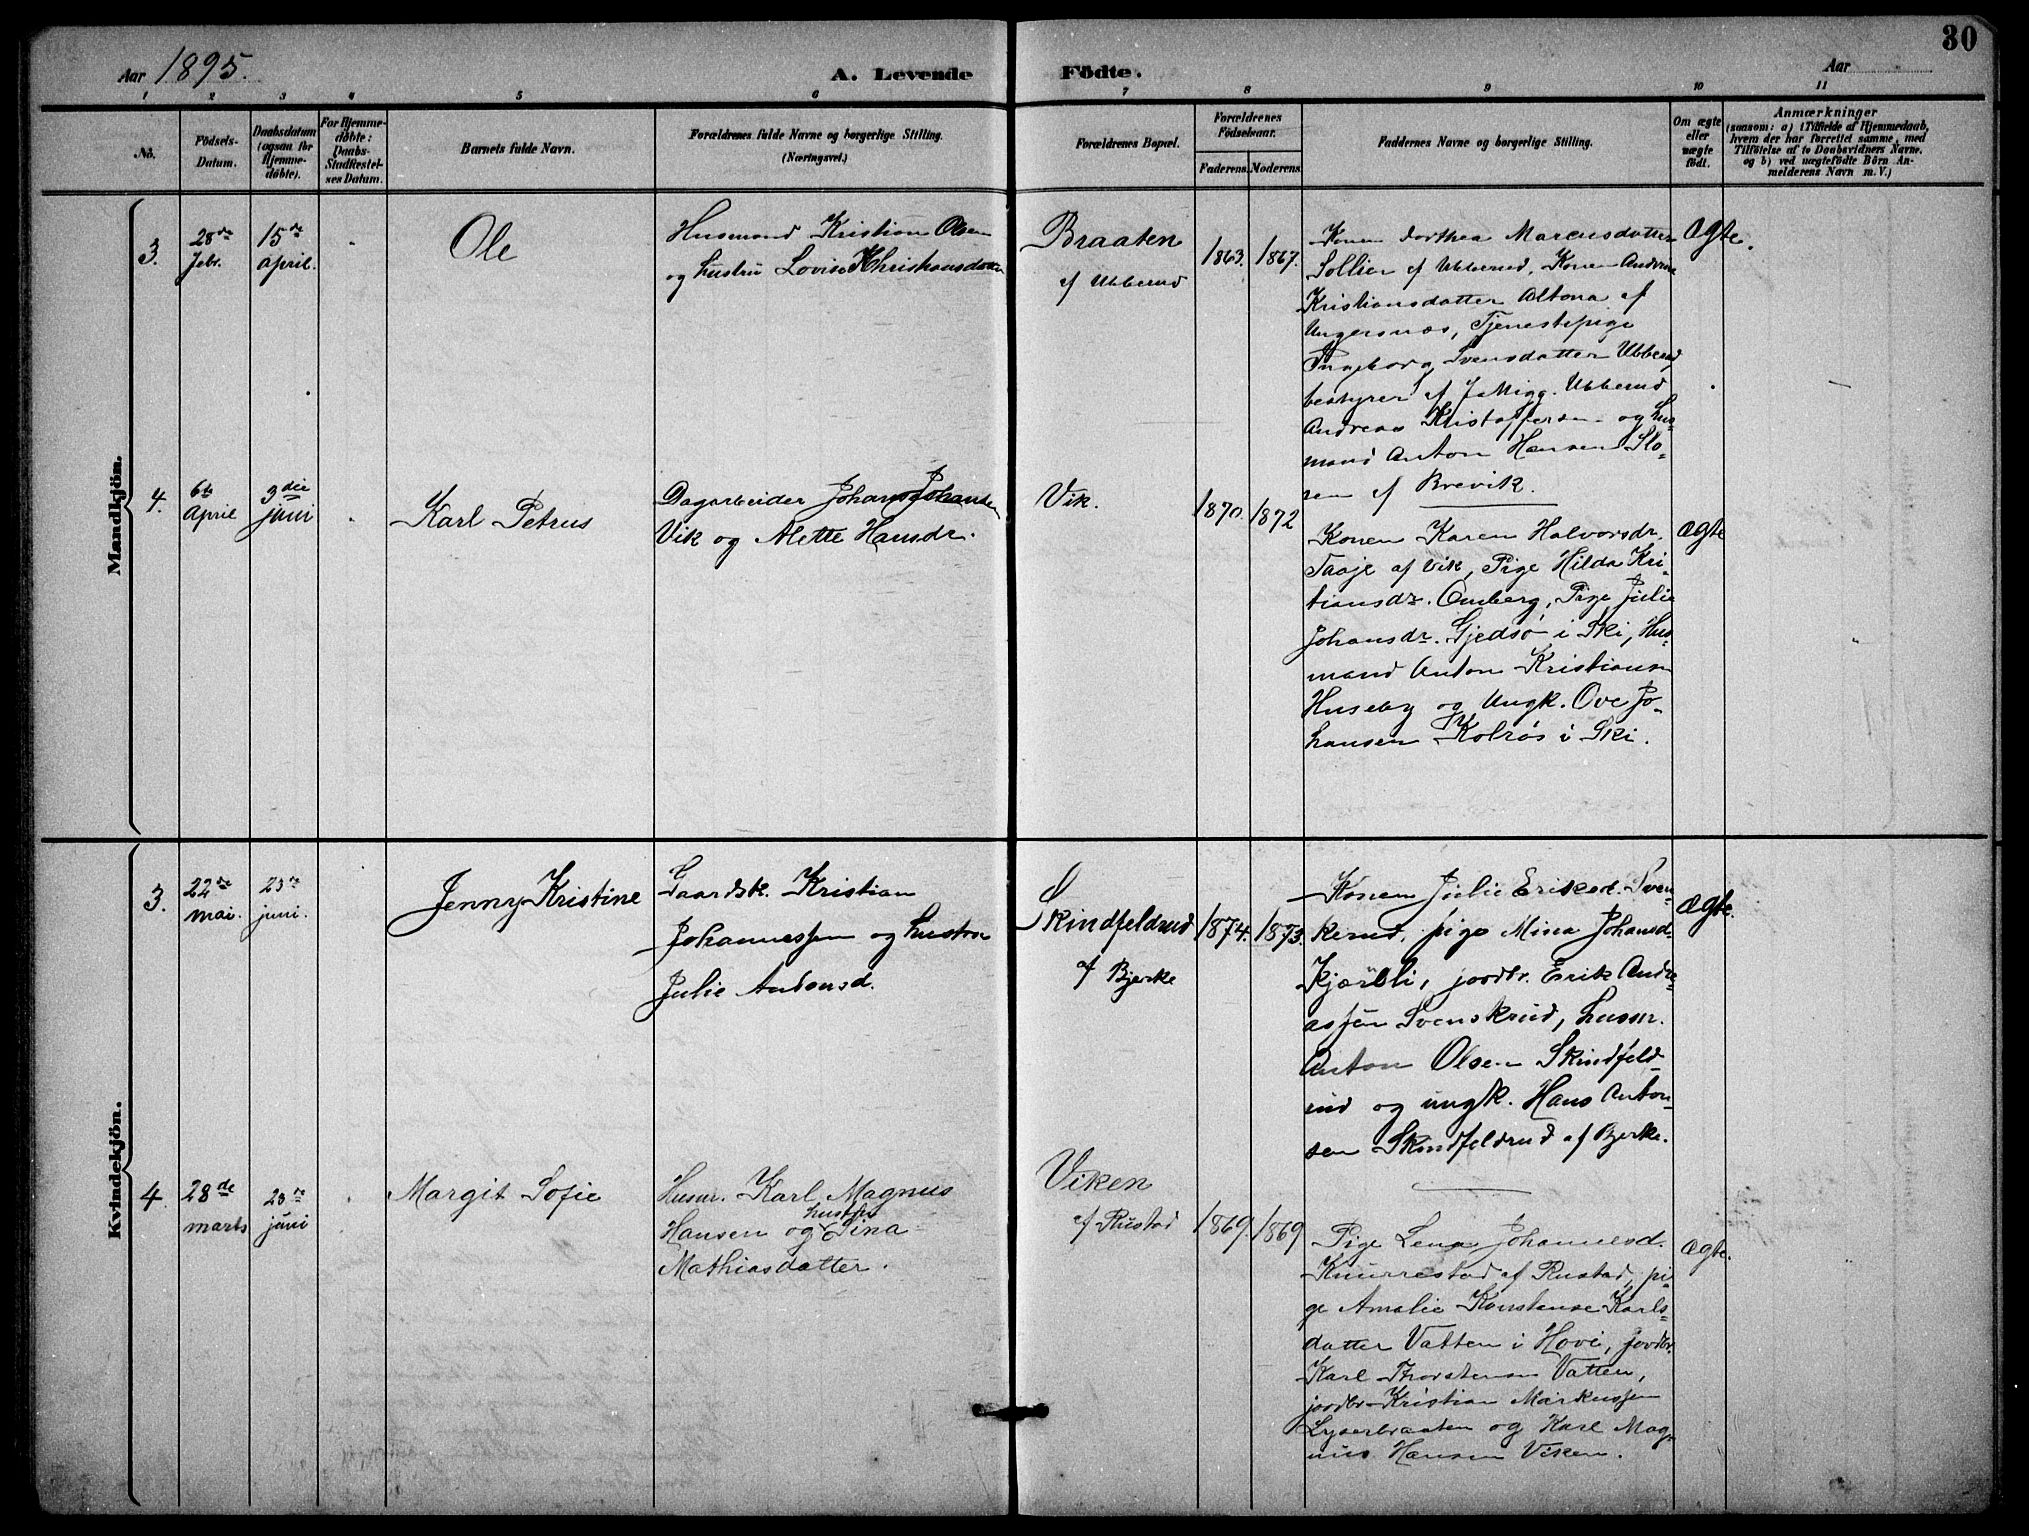 30
Aar 1895.
A. Levende
Födte.
Aar
1
2
3
4
5
6
7
8
9
10
11
No.
Födsels-
Datum.
Daabsdatum
(ogsaa for
Hjemme-
döbte).
For Hjemme-
döbte:
Daabs-
Stadfæstel-
ses Datum.
Barnets fulde Navn.
Forældrenes fulde Navne og borgerlige Stilling.
(Næringsvei.)
Forældrenes Bopæl.
Forældrenes
Födselsaar.
Faderens.
Moderens.
Faddernes Navne og borgerlige Stilling.
Om ægte
eller
uægte
födt.
Anmærkninger
(saasom: a) i Tilfælde af Hjemmedaab,
hvem der har forrettet samme, med
Tilföielse af to Daabsvidners Navne,
og b) ved uægtefödte Börn An-
melderens Navn m. V.)
Mandkjön.
3.
28de
Febr.
15de
April.
Ole
Husmand Kristian Olsen
og hustru Lovise Khristiansdatter
Braaten
af Ubberud
1863.
1867.
Konen Dorthea Marcusdatter
Sollien af Ubberud, Konen Andrine
Kristiansdatter Altona af
Ungersnæs, Tjenestepige
Ingeborg Svensdatter Ubberud,
bestyrer af Ubberud
Andreas Kristoffersen og hus-
mand Anton Hansen Slo-
ren af Brevik.
Ægte.
4.
6te
April
3die
juni
Karl Petrus
Dagarbeider Johans Johansen
Vik og Alette Hansdr.
Vik.
1870.
1872
Konen Karen Halvorsdr.
Taaje af Vik, Pige Hilda Kri-
tiansdr. Omberg, Pige Julie
Johansdr. Gjedsø i Ski, Hus-
mand Anton Kristiansen
Huseby og Ungk. Ove Jo-
hansen Kolrøs i Ski.
Ægte
Kvindekjön.
3.
22de
mai.
23de
juni.
Jenny Kristine
Gaardsk. Kristian
Johannessen og hustru
Julie Antonsd.
Skindfeldrud
af Bjerke
1874.
1873.
Konen Julie Eriksd. Sven-
kerud, pige Mina Johansd.
Kjærbli, jordbr. Erik Andre-
assen Svenskrud, husm.
Anton Olsen Skindfeld-
rud og ungk. Hans Anton-
sen Skindfeldrud af Bjerke.
Ægte.
4
28de
marts
23de
juni
Margit Sofie
Husm. Karl Magnus
hustru
Hansen og Sina
Mathiasdatter.
Viken
af Rustad
1869.
1869
Pige Lena Johannesd.
Knurrestad af Rustad, pi-
ge Amalie Konstanse Karls-
datter Vatten i Hovi, jordbr.
Karl Thorstensen Vatten,
jordbr. Kristian Markussen
Lyserbraaten og Karl Mag-
nus Hansen Viken.
Ægte.